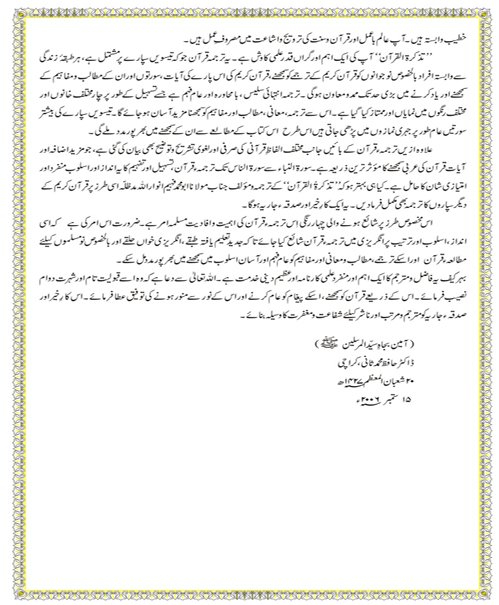 خطیب وابستہ ہیں۔ آپ عالم باعمل اور قرآن و سنت کی ترویج و اشاعت میں مصروف عمل ہیں۔
’’تذکرۃ القرآن‘‘ آپ کی ایک اہم اور گراں قدر علمی کاوش ہے۔ یہ ترجمہ قرآن جو کہ تیسویں سپارے پر مشتمل ہے، ہر طبقۂ زندگی
سے وابستہ افراد بالخصوص نوجوانوں کو قرآن کریم کے ترجمے کو سمجھنے، قرآن کریم کی اس پارے کی آیات، سورتوں اور ان کے مطالب و مفاہیم کے
سمجھنے اور یاد کرنے میں بڑی حد تک ممد و معاون ہوگی۔ ترجمہ انتہائی سلیس، بامحاورہ اور عام فہم ہے جسے تسہیل کے طور پر چار مختلف خانوں اور
مختلف رنگوں میں نمایاں اور ممتاز کیا گیا ہے۔ اس سے ترجمہ، معانی، مطالب اور مفاہیم کو سمجھنا مزید آسان ہو جائے گا۔ تیسویں سپارے کی بیشتر
سورتیں عام طور پر جہری نمازوں میں پڑھی جاتی ہیں اس طرح اس کتاب کے مطالعے سے ان کے سمجھنے میں بھرپور مدد ملے گی۔
علاوہ ازیں ترجمہ قرآن کے بائیں جانب مختلف الفاظ قرآنی کی صرفی اور لغوی تشریح و توضیح بھی بیان کی گئی ہے، جو مزید اضافہ اور
آیات قرآن کی عربی سمجھنے کا مؤثر ترین ذریعہ ہے۔ سورۃ النباء سے سورۃ الناس تک ترجمہ قرآن، تسہیل اور تفہیم کا یہ انداز اور اسلوب منفرد اور
امتیازی شان کا حامل ہے۔ کیا ہی بہتر ہو کہ ’’تذکرۃ القرآن‘‘ کے ترجمہ و مؤلف جناب مولانا ابو محمد فہیم انوار اللہ مدظلہ اسی طرز پر قرآن کریم کے
دیگر سپاروں کا ترجمہ بھی مکمل فرما دیں۔ یہ ایک کار خیر اور صدقہ جاریہ ہوگا۔
اس مخصوص طرز پر شائع ہونے والی چہار رنگی اس ترجمہ، قرآن کی اہمیت و افادیت مسلمہ امر ہے۔ ضرورت اس امر کی ہے کہ اسی
انداز، اسلوب اور ترتیب پر انگریزی میں ترجمہ قرآن شائع کیا جائے تاکہ جدید تعلیم یافتہ طبقے، انگریزی خواں طبقے اور بالخصوص نو مسلموں کیلئے
مطالعہ قرآن اور اسکے ترجمے، مطالب و معانی اور مفاہیم کو عام فہم اور آسان اسلوب میں سمجھنے میں بھرپور مدد مل سکے۔
بہرکیف یہ فاضل و مترجم کا ایک اہم اور منفرد علمی کارنامہ اور عظیم دینی خدمت ہے۔ اللہ تعالیٰ سے دعا ہے کہ وہ اسے قبولیت تام اور شہرت دوام
نصیب فرمائے۔ اس کے ذریعے قرآن کو سمجھنے، اسکے پیغام کو عام کرنے اور اس کے نور سے منور ہونے کی توفیق عطا فرمائے۔ اس کار خیر اور
صدقہء جاریہ کو مترجم و مرتب اور ناشر کیلئے شفاعت و مغفرت کا وسیلہ بنائے۔
(آمین بجاہ سیّد المرسلین ﷺ)
ڈاکٹر حافظ محمد ثانی، کراچی
۲۰ شعبان المعظم ۱۴۲۷ھ
۱۵ ستمبر ۲۰۰۶ء